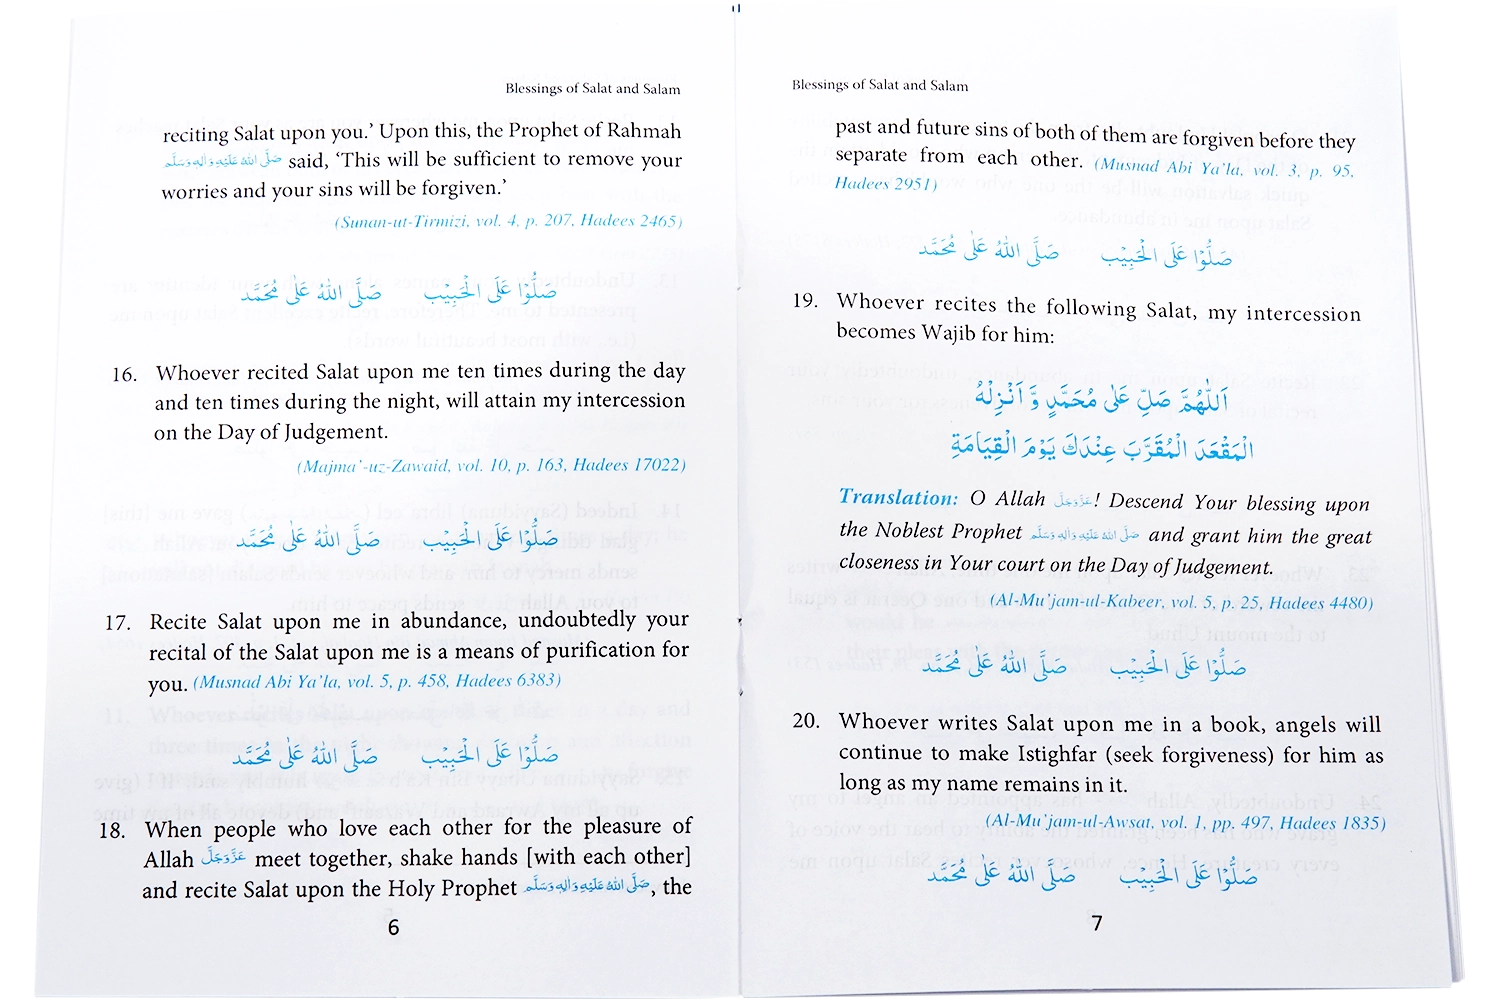 Blessings of Salat and Salam
reciting Salat upon you.’ Upon this, the Prophet of Rahmah
صَلَّى اللهُ عَلَيْهِ وَاٰلِهٖ وَسَلَّم said, ‘This will be sufficient to remove your
worries and your sins will be forgiven.’
(Sunan-ut-Tirmizi, vol. 4, p. 207, Hadees 2465)
صَلُّوْا عَلَى الْحَبِيْب صَلَّى اللهُ عَلٰى مُحَمَّد
16. Whoever recited Salat upon me ten times during the day
and ten times during the night, will attain my intercession
on the Day of Judgement.
(Majma’-uz-Zawaid, vol. 10, p. 163, Hadees 17022)
صَلُّوْا عَلَى الْحَبِيْب صَلَّى اللهُ عَلٰى مُحَمَّد
17. Recite Salat upon me in abundance, undoubtedly your
recital of the Salat upon me is a means of purification for
you. (Musnad Abi Ya’la, vol. 5, p. 458, Hadees 6383)
صَلُّوْا عَلَى الْحَبِيْب صَلَّى اللهُ عَلٰى مُحَمَّد
18. When people who love each other for the pleasure of
Allah عَزَّوَجَلَّ meet together, shake hands [with each other]
and recite Salat upon the Holy Prophet صَلَّى اللهُ عَلَيْهِ وَاٰلِهٖ وَسَلَّم, the
6
Blessings of Salat and Salam
past and future sins of both of them are forgiven before they
separate from each other. (Musnad Abi Ya’la, vol. 3, p. 95,
Hadees 2951)
صَلُّوْا عَلَى الْحَبِيْب صَلَّى اللهُ عَلٰى مُحَمَّد
19. Whoever recites the following Salat, my intercession
becomes Wajib for him:
اَللّٰهُمَّ صَلِّ عَلٰى مُحَمَّدٍ وَّ اَنْزِلْهُ
الْمَقْعَدَ الْمُقَرَّبَ عِنْدَكَ يَوْمَ الْقِيَامَةِ
Translation: O Allah عَزَّوَجَلَّ! Descend Your blessing upon
the Noblest Prophet صَلَّى اللهُ عَلَيْهِ وَاٰلِهٖ وَسَلَّم and grant him the great
closeness in Your court on the Day of Judgement.
(Al-Mu’jam-ul-Kabeer, vol. 5, p. 25, Hadees 4480)
صَلُّوْا عَلَى الْحَبِيْب صَلَّى اللهُ عَلٰى مُحَمَّد
20. Whoever writes Salat upon me in a book, angels will
continue to make Istighfar (seek forgiveness) for him as
long as my name remains in it.
(Al-Mu’jam-ul-Awsat, vol. 1, pp. 497, Hadees 1835)
صَلُّوْا عَلَى الْحَبِيْب صَلَّى اللهُ عَلٰى مُحَمَّد
7